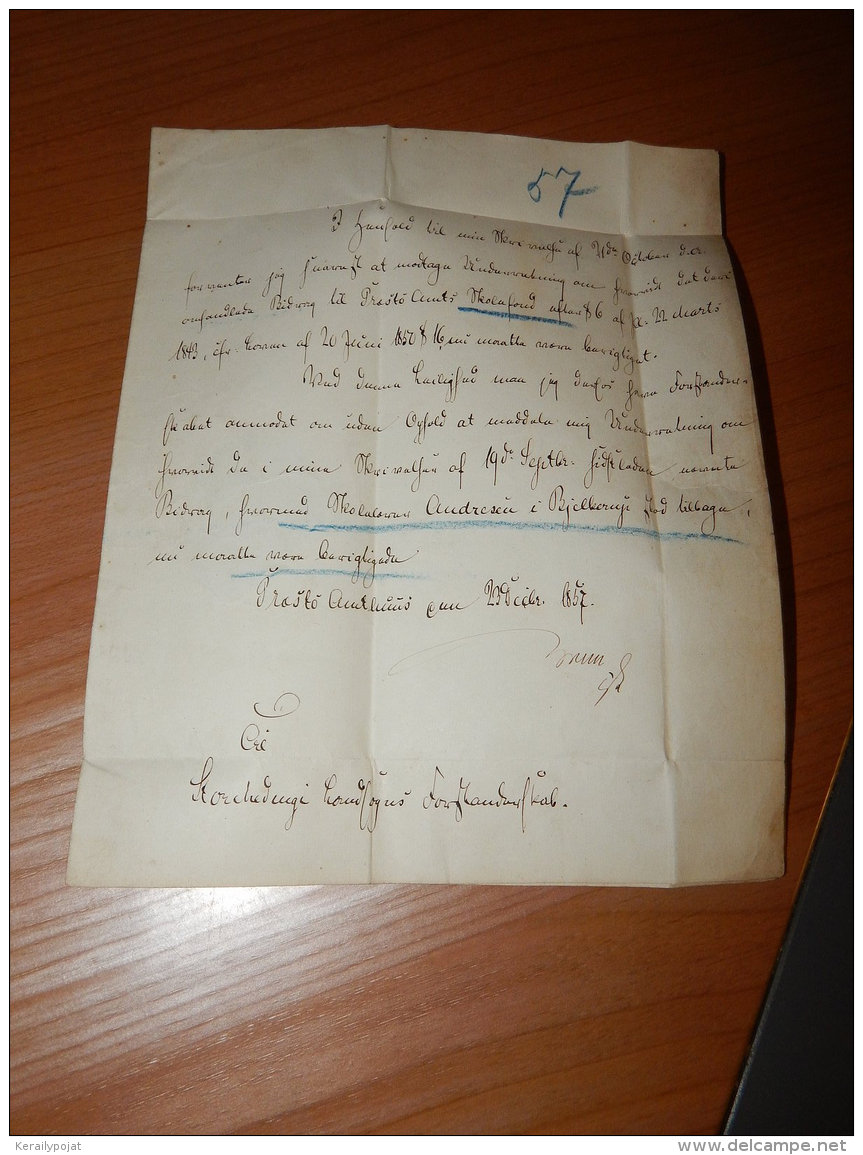 57
I Henhold til min Skrivelse af 21de October d.A.
forventer jeg snarest at modtage Underretning om hvorvidt det deri
omhandlede Bidrag til Præstö Amts Skolefond efter § 6 af Pl. 22 Marts
1843, cfr. Loven af 20 Juni 1850 § 16, nu maatte være berigtiget.
Ved denne Leilighed maa jeg derhos have Forstander-
skabet anmodet om uden Ophold at meddele mig Underretning om
hvorvidt de i min Skrivelse af 19de Septbr. sidstleden nævnte
Bidrag, hvormed Skolelærer Andresen i Bjelkerup stod tilbage,
nu maatte være berigtigede
Præstö Amthuus den 23 Decbr. 1857.
Til
Storehedinge Landsogns Forstanderskab.
Kerailypojat
www.delcampe.net